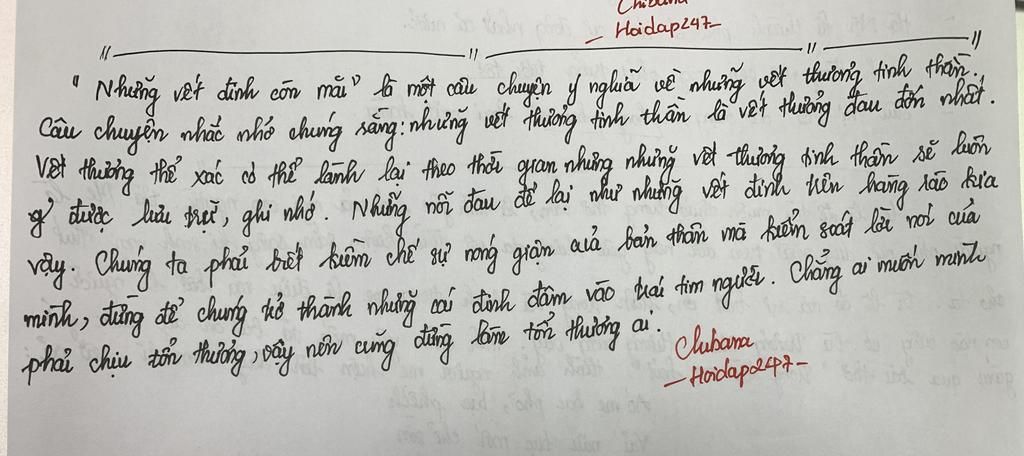 Chibana
– Hoidap247 –
"Những vết đinh còn mãi" là một câu chuyện ý nghĩa về những vết thương tinh thần.
Câu chuyện nhắc nhớ chúng rằng: những vết thương tinh thần là vết thương đau đớn nhất.
Vết thương thể xác có thể lành lại theo thời gian nhưng những vết thương tinh thần sẽ luôn
được lưu trữ, ghi nhớ. Những nỗi đau để lại như những vết đinh trên hàng rào kia
vậy. Chúng ta phải biết kiềm chế sự nóng giận của bản thân mà kiểm soát lời nói của
mình, đừng để chúng trở thành những cái đinh đâm vào trái tim người. Chẳng ai muốn mình
phải chịu tổn thương, vậy nên cũng đừng làm tổn thương ai.
Chibana
– Hoidap247 –